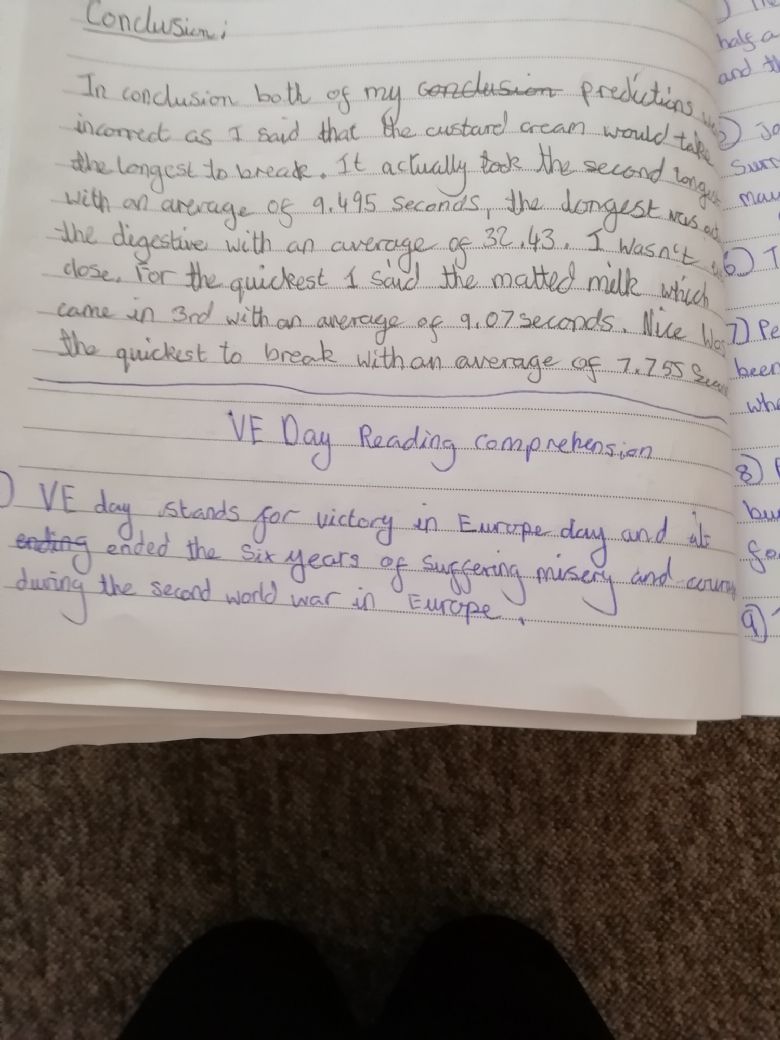 Conclusion:
In conclusion both of my conclusion predictions
incorrect as I said that the custard cream would take
the longest to break. It actually took the second longest
with an average of 9.495 seconds, the longest was
the digestive with an average of 32.43. I wasn't
close. For the quickest I said the matted milk which
came in 3rd with an average of 9.07 seconds. Nice Was
the quickest to break with an average of 7.755
VE Day Reading comprehension
) VE day stands for victory in Europe day and it
ending ended the six years of suffering misery and
during the second world war in Europe.
half a
and th
5) Jo
Surr
may
6) I
7) Pe
been
who
8)
bu
9)